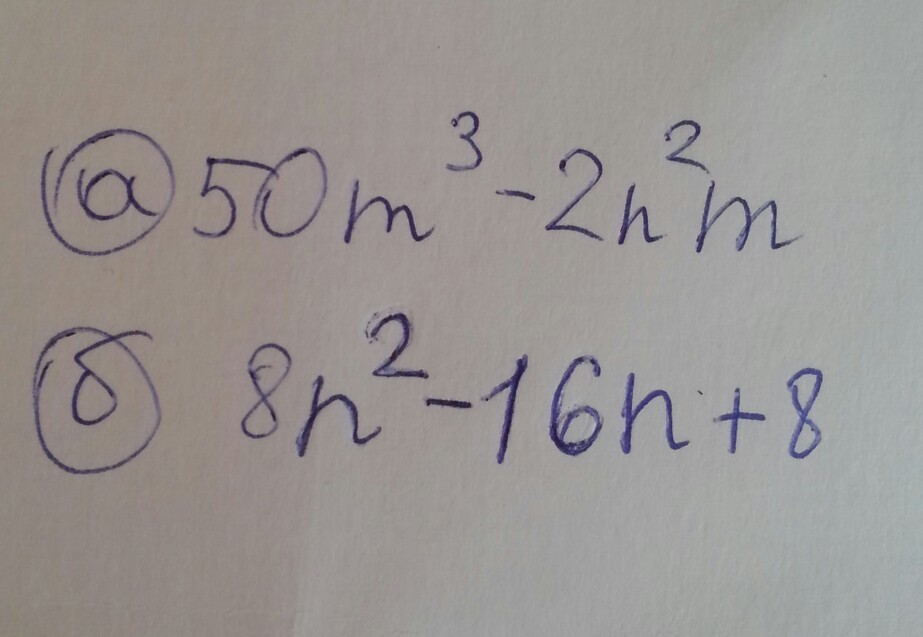 а 50m³ - 2n²m
б 8n² - 16n + 8